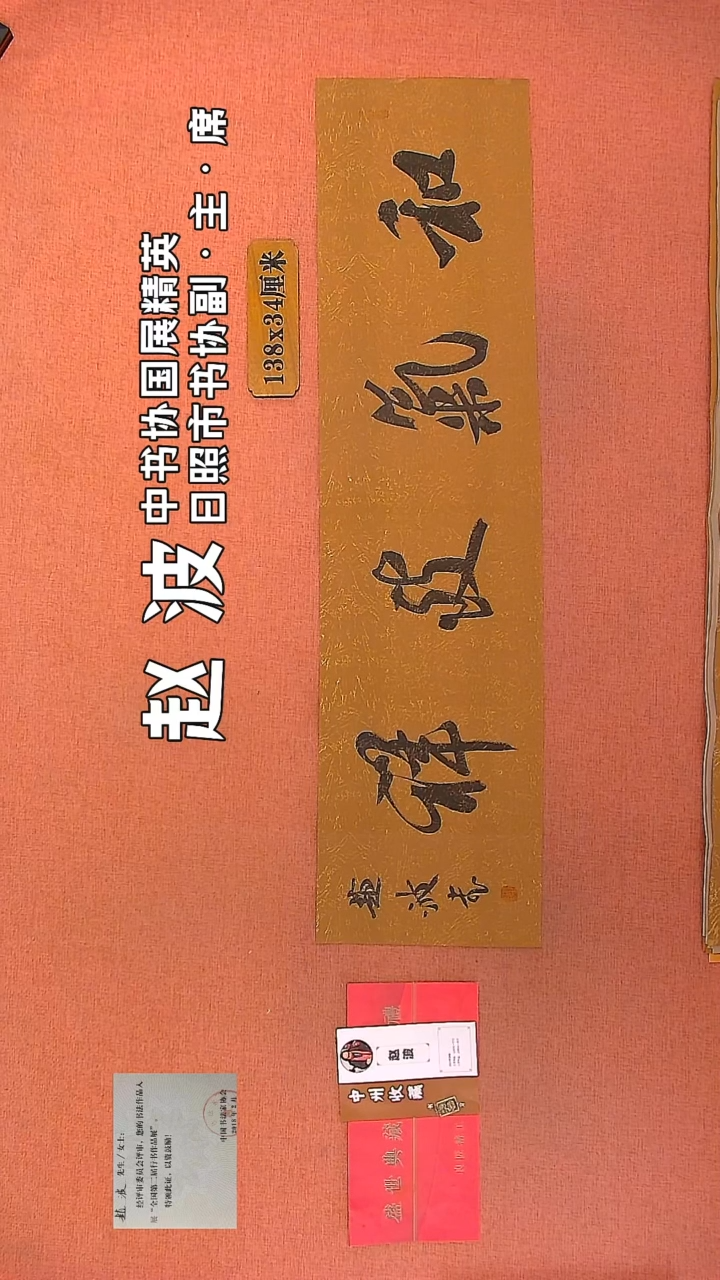 赵波
中书协国展精英
日照市书协副·主·席
138x34厘米
和氣致祥
趙波书
赵波
中州收藏
盛世典藏
趙波 先生/女士:
经评审委员会评审,您的书法作品入
展“全国第二届行书作品展”。
特颁此证,以资鼓励!
中国书法家协会